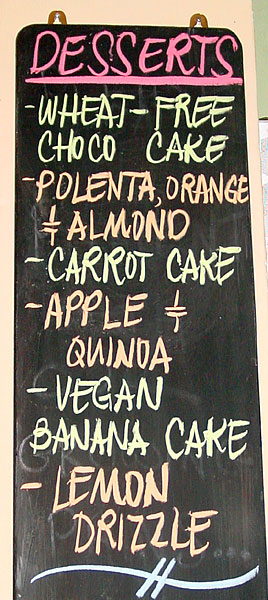 DESSERTS
- WHEAT-FREE
CHOCO CAKE
- POLENTA, ORANGE
& ALMOND
- CARROT CAKE
- APPLE &
QUINOA
- VEGAN
BANANA CAKE
- LEMON
DRIZZLE